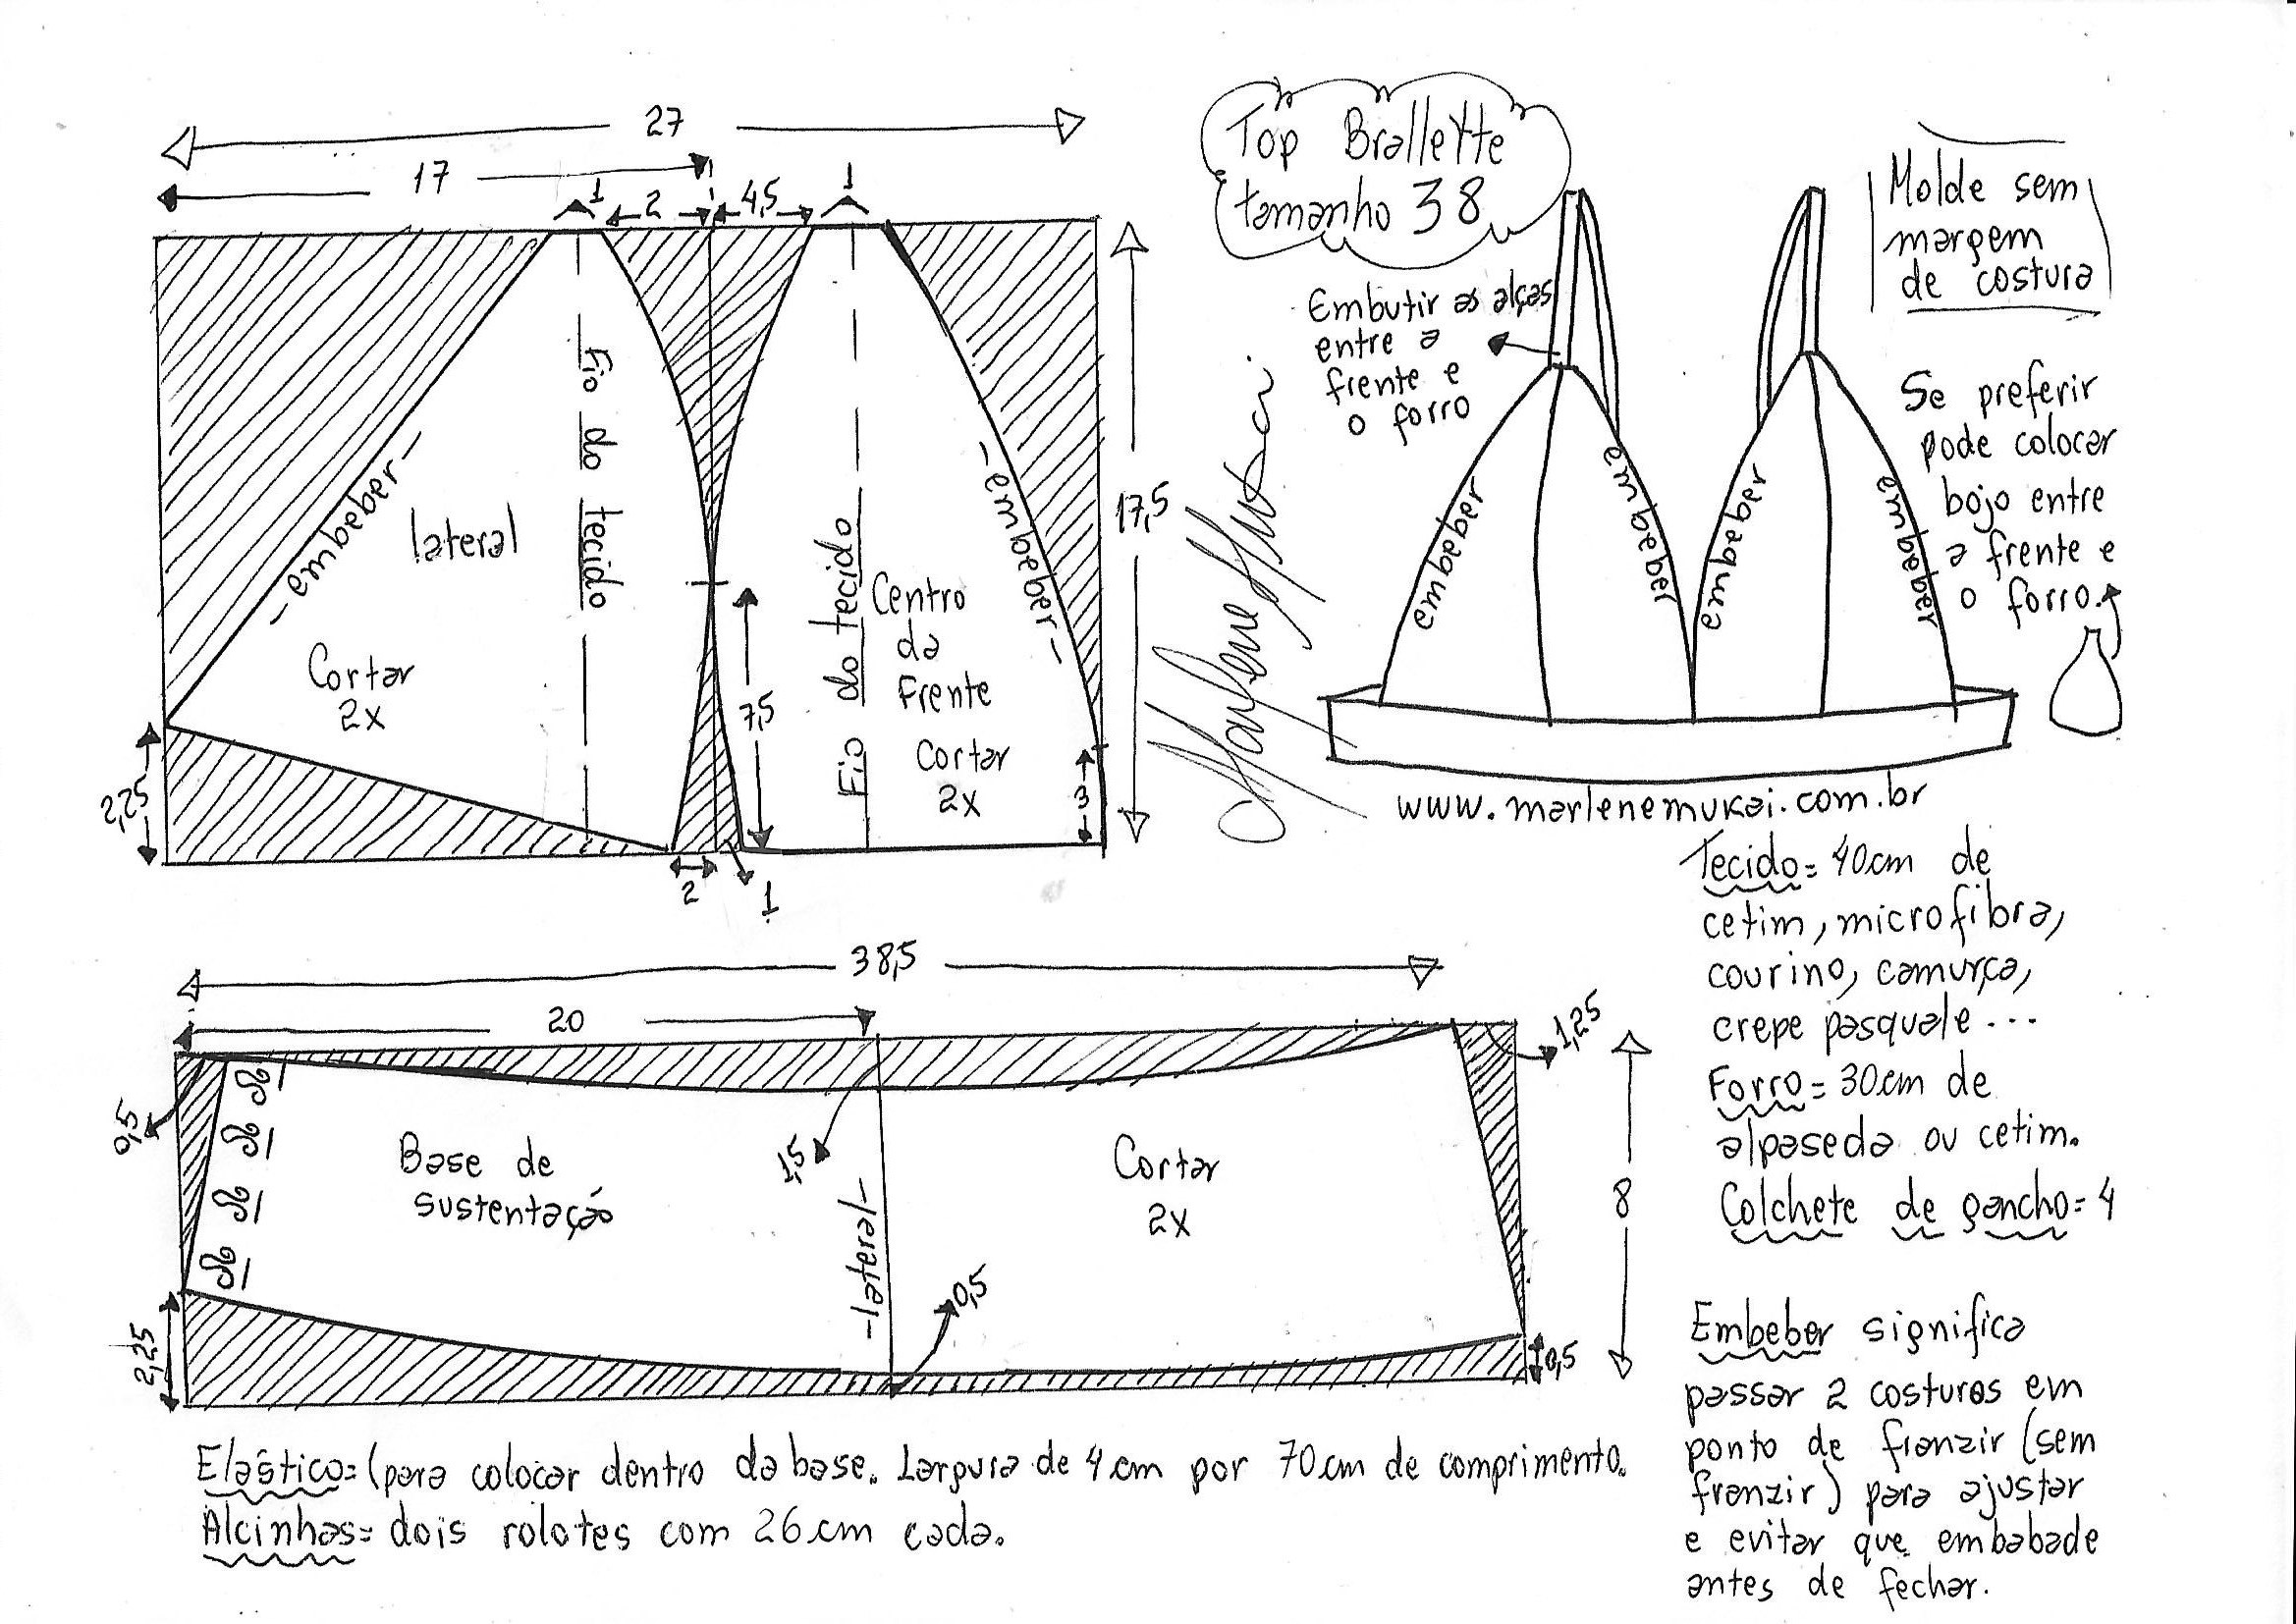 27
17
1
2
4,5
1
17,5
-embeber-
lateral
Fio do tecido
Cortar
2x
2,25
7,5
Fio do tecido
Centro
da
Frente
Cortar
2x
-embeber-
3
2
1
Top Brallette
tamanho 38
Molde sem
margem
de costura
Embutir as alças
entre a
frente e
o forro
Se preferir
pode colocar
bojo entre
a frente e
o forro.
embeber
embeber
embeber
embeber
www.marlenemukai.com.br
Marlene Mukai
Tecido= 40cm de
cetim, microfibra,
courino, camurça,
crepe pasquale...
Forro= 30cm de
alpaseda ou cetim.
Colchete de gancho= 4
38,5
20
0,5
1,25
Base de
sustentação
1,5
-lateral-
Cortar
2x
8
0,5
2,25
0,5
Embeber significa
passar 2 costuras em
ponto de franzir (sem
franzir) para ajustar
e evitar que embabade
antes de fechar.
Elástico= (para colocar dentro da base. Largura de 4cm por 70cm de comprimento.
Alcinhas= dois rolotes com 26cm cada.